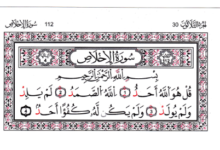 سُورَةُ الإِخْلَاصِ 112 الجزء الثلاثون 30
سُورَةُ الإِخْلَاصِ
بِسْمِ اللَّهِ الرَّحْمَٰنِ الرَّحِيمِ
قُلْ هُوَ اللَّهُ أَحَدٌ ١ اللَّهُ الصَّمَدُ ٢ لَمْ يَلِدْ
وَلَمْ يُولَدْ ٣ وَلَمْ يَكُن لَّهُ كُفُوًا أَحَدٌ ٤